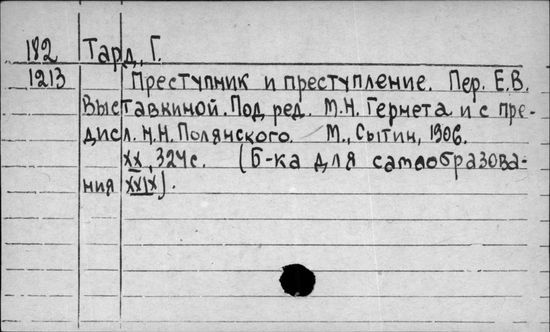 182 Тард, Г.
1213 Преступник и преступление. Пер. Е.В.
Выставкиной. Под ред. М.Н. Гернета и с пре-
дисл. Н.Н. Полянского. М., Сытин, 1906.
XX, 324 с. (Б-ка для самообразова-
ния XXIX).